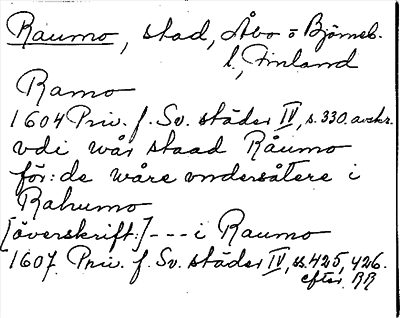 Raumo, stad, Åbo o Björneb.
l., Finland
Ramo
1604 Priv. f. Sv. städer IV, s. 330. avskr.
vdi wår staad Råumo
för: de wåre vndersåtere i
Rahumo
[överskrift:] --- i Raumo
1607. Priv. f. Sv. städer IV, ss. 425, 426.
efter RR